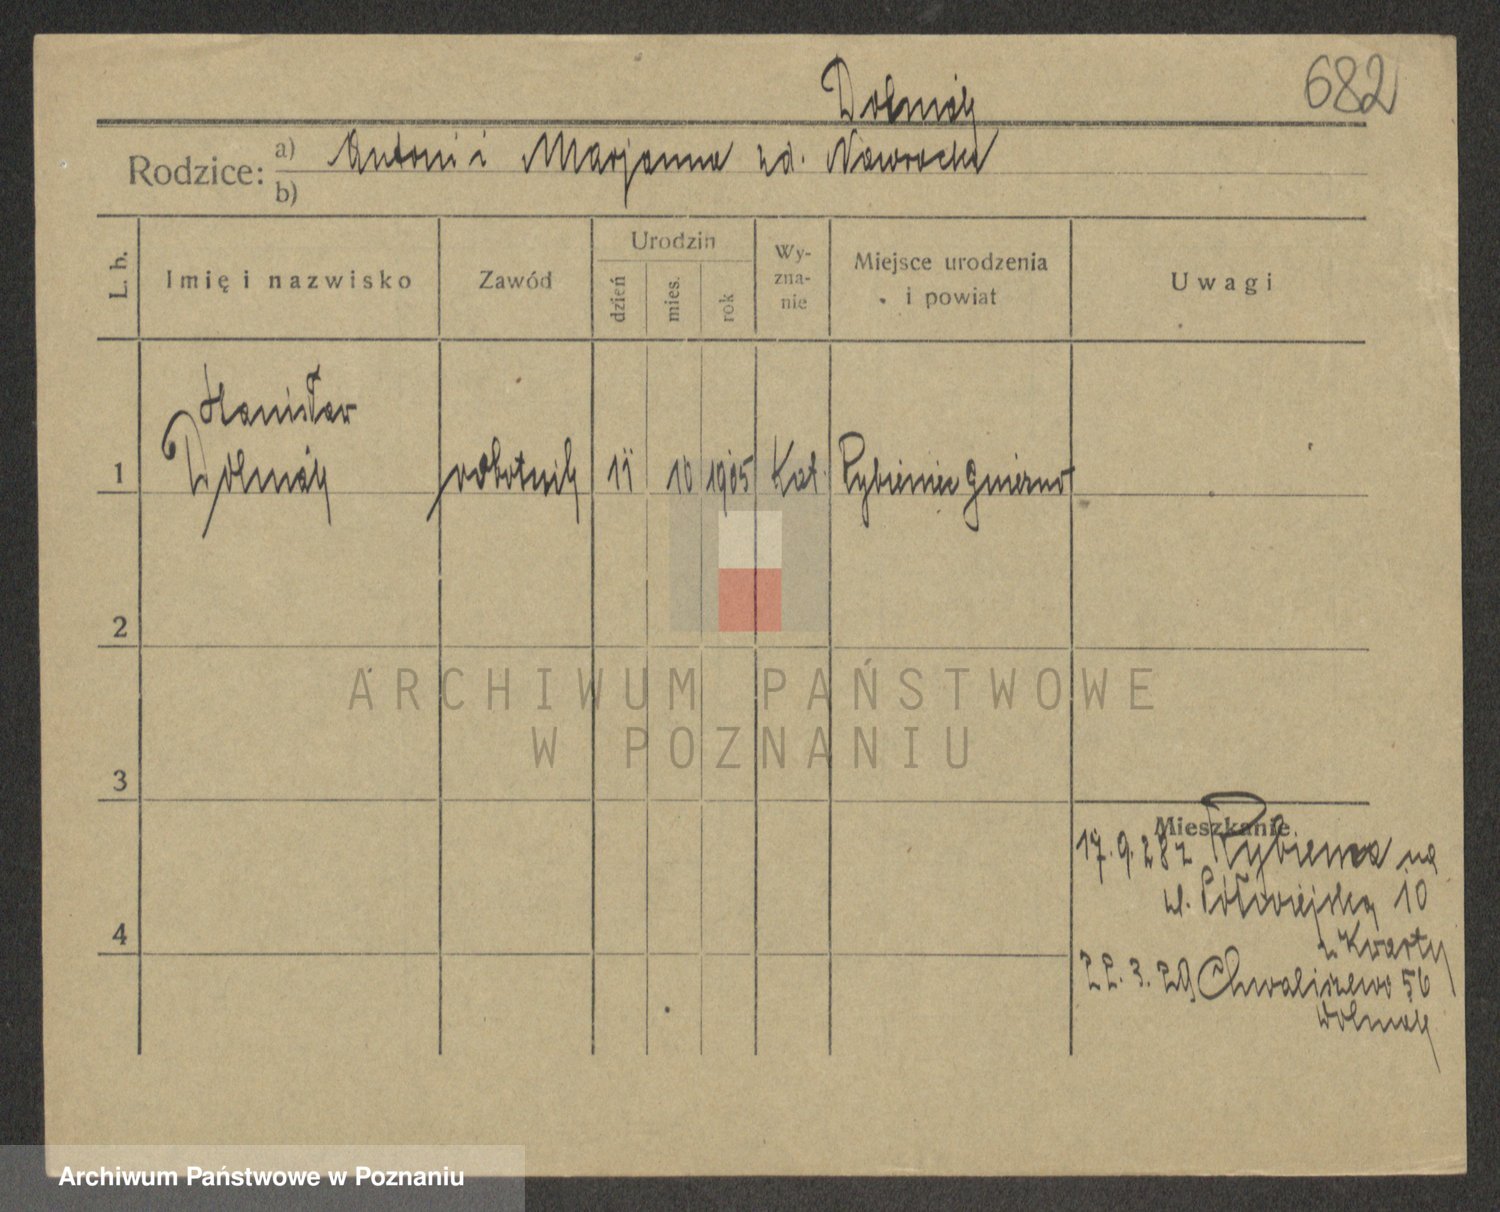 682
Dolmaj
Rodzice: a) Antoni i Marjanna zd. Nawrocka
b)
L. b.
Imię i nazwisko
Zawód
Urodzin
dzień
mies.
rok
Wy-
zna-
nie
Miejsce urodzenia
i powiat
Uwagi
Stanisław
1 Dolmaj robotnik 11 10 1905 Kat. Rybieniec Gniezno
2
3
4
Mieszkanie
17.9.28 z na
ul. Półwiejską 10
z Kwarty
22.3.29 Chwaliszewo 56
Dolmaj
ARCHIWUM PAŃSTWOWE
W POZNANIU
Archiwum Państwowe w Poznaniu